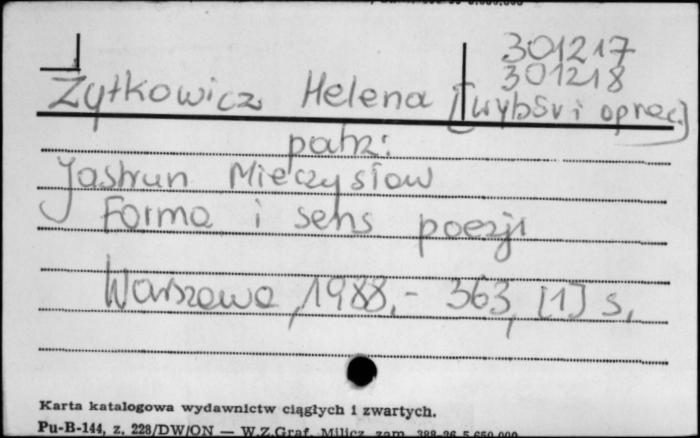 301217
301218
Żytkowicz Helena [wybór i oprac.]
patrz:
Jastrun Mieczysław
Forma i sens poezji
Warszawa, 1988.- 363, [1] s.
Karta katalogowa wydawnictw ciągłych i zwartych.
Pu-B-144, z. 228/DW/ON — W.Z.Graf. Milicz, zam. 388-26 5.650.000